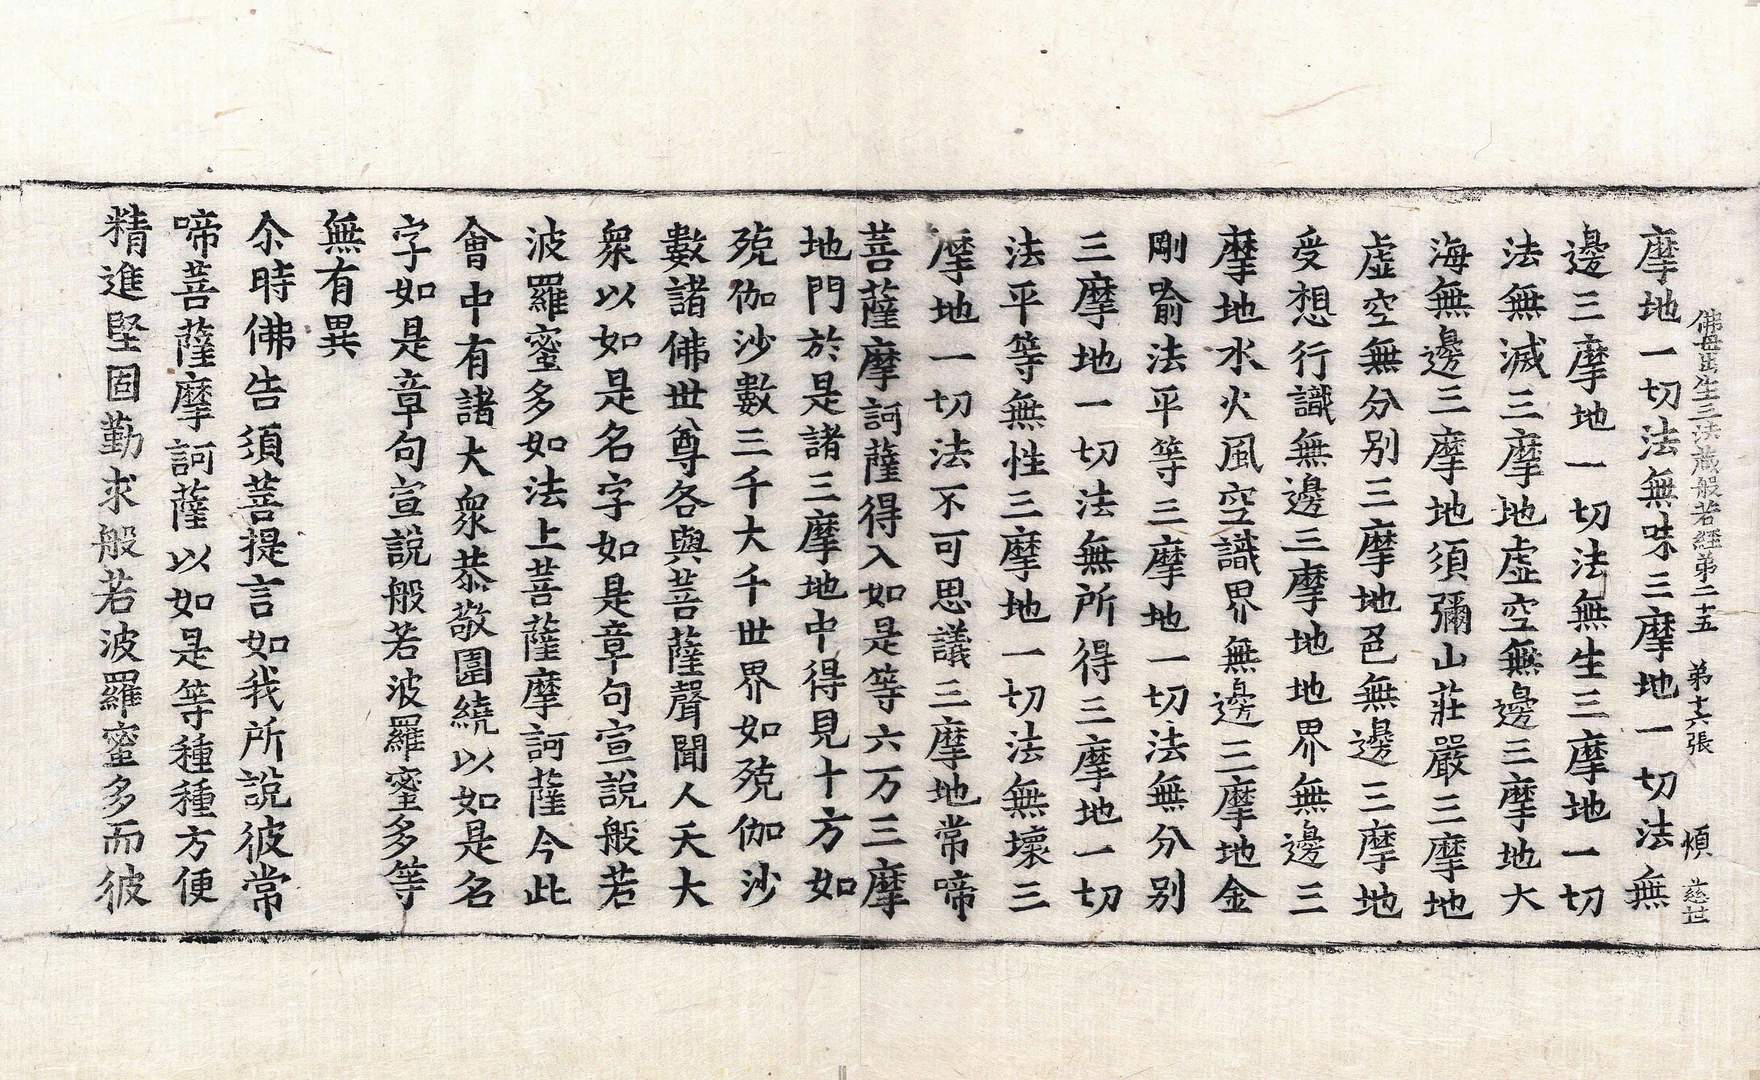 佛母出生三法藏般若經第二十五　第十六張　煩　慈世
摩地一切法無味三摩地一切法無
邊三摩地一切法無生三摩地一切
法無滅三摩地虛空無邊三摩地大
海無邊三摩地須彌山莊嚴三摩地
虛空無分别三摩地色無邊三摩地
受想行識無邊三摩地地界無邊三
摩地水火風空識界無邊三摩地金
剛喻法平等三摩地一切法無分别
三摩地一切法無所得三摩地一切
法平等無性三摩地一切法無壞三
摩地一切法不可思議三摩地常啼
菩薩摩訶薩得入如是等六万三摩
地門於是諸三摩地中得見十方如
殑伽沙數三千大千世界如殑伽沙
數諸佛世尊各與菩薩聲聞人天大
衆以如是名字如是章句宣說般若
波羅蜜多如法上菩薩摩訶薩今此
會中有諸大衆恭敬圍繞以如是名
字如是章句宣説般若波羅蜜多等
無有異
尒時佛告須菩提言如我所說彼常
啼菩薩摩訶薩以如是等種種方便
精進堅固勤求般若波羅蜜多而彼